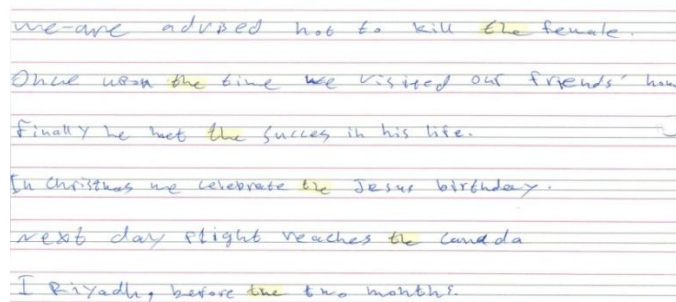 we-are advised not to kill the female.
Once upon the time we visited our friends' hom
Finally he met the succes in his life.
In Christmas we celebrate the Jesus birthday.
Next day flight reaches the Canada
I Riyadh, before the two months.